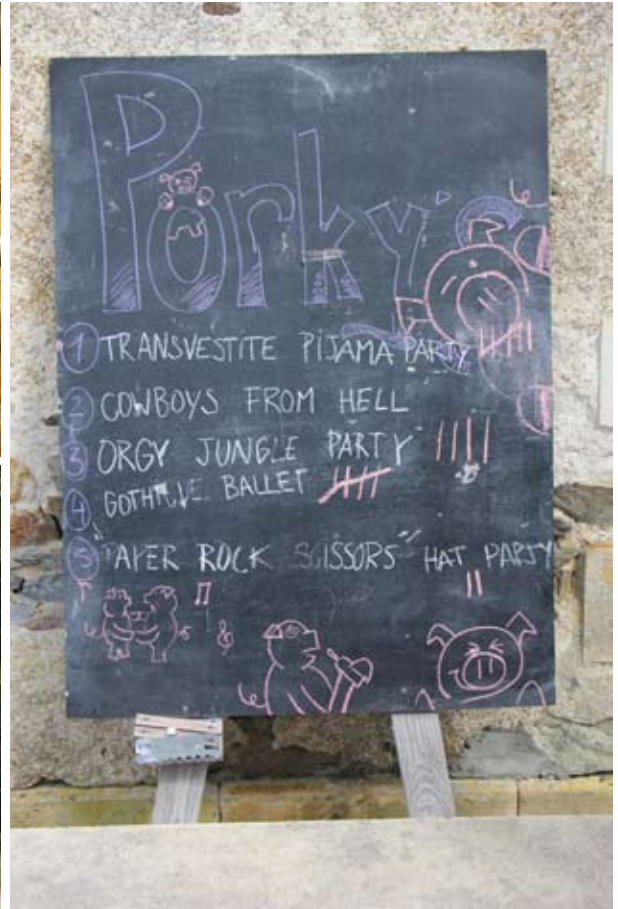 Porky's
1 TRANSVESTITE PIJAMA PARTY
2 COWBOYS FROM HELL
3 ORGY JUNGLE PARTY
4 BALLET
5 "PAPER ROCK SCISSORS" HAT PARTY